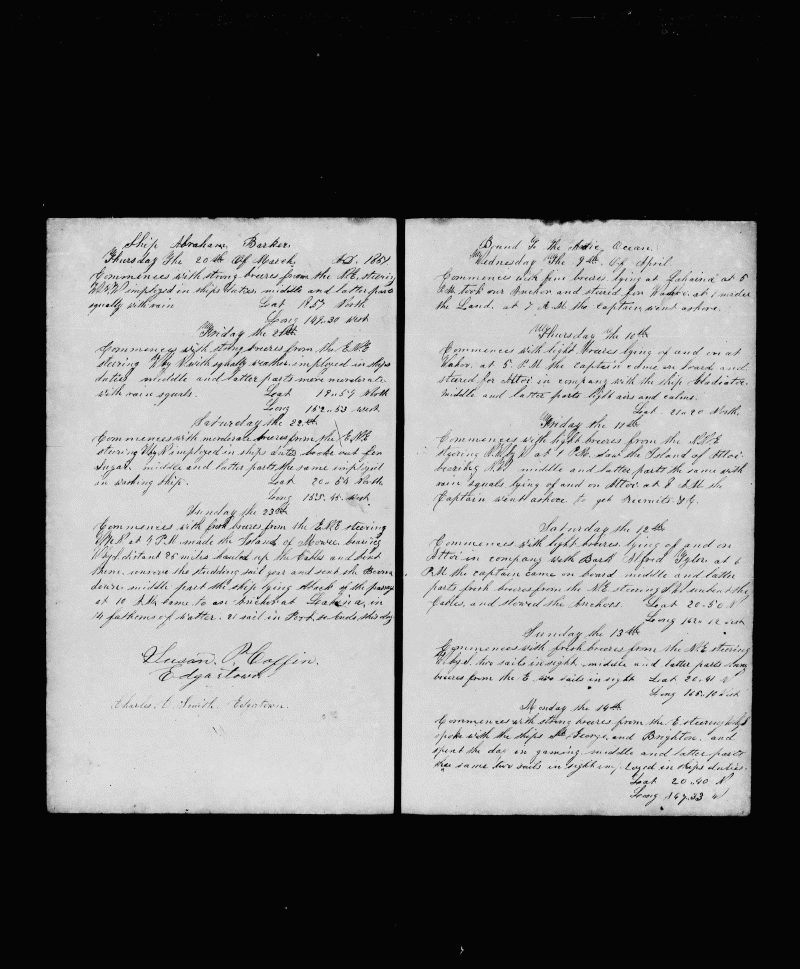 Ship Abraham Barker
Thursday The 20th Of March AD. 1851
Commences with strong breeses from the N.E. steering
W.B.N imployed in ships duties middle and latter parts
squally with rain Leat 18.57 North
Long 149.30 west
Friday the 21th
Commences with strong breeses from the E.N.E
steering W by N with squally weather imployed in ships
duties middle and latter parts more moderate
with rain squals. Leat 19.57 North
Long 152.53 west
Saturday the 22th
Commences with moderate breeses from the E.N.E
steering W by N imployed in ships duties broke out for
sugar, middle and latter parts the same imployed
in washing ship. Leat 20.54 North
Long 155.45 west
Sunday the 23th
Commences with fresh breeses from the E.N.E steering
at 4 P.M. made the Island of Mowee bearing
W by N distant 25 miles hauled up the Cables and bent
them, unrove the studding sail gear and sent the Booms
down middle part the ship lying aback of the passage
at 10 A.M. come to an anchor at Lahaina, in
14 fathoms of watter. 21 sail in Port. so ends this day
Susan P. Coffin.
Edgartown
Charles Smith Edgartown.
Bound To the Artic Ocean.
Wednesday The 9th Of April
Commences with fine breeses lying at Lahaina at 5
P.M. took our Anchor and steered for Wahoo. at under
the Land, at 7 A.M the captain went ashore.
Thursday the 10th
Commences with light breeses lying of and on at
Wahoo, at 5 P.M the captain came on board and
steered for Attoi in company with the ship Gladiator
middle and latter parts light airs and calms.
Leat 21.20 North
Friday the 11th
Commences with light breeses from the N.N.E
steering at 1 P.M. saw the Island of Attoi
bearing middle and latter parts the same with
rain squals lying of and on Attoi at 8 A.M the
Captain went ashore to get recruits &c.
Saturday the 12th
Commences with light breeses lying of and on
Attoi in company with Bark Alfred Tyler at 6
P.M the captain came on board middle and latter
parts fresh breeses from the N.E steering unbent the
Cables, and stowed the Anchors. Leat 20.50 N
Long 162.12 west
Sunday the 13th
Commences with fresh breeses from the N.E steering
two sails in sight middle and latter parts strong
breeses from the E. two sails in sight Leat 20.41 N
Long 165.10 west
Monday the 14th
Commences with strong breeses from the E. steering
spoke with the ships St. George, and Brighton, and
spent the day in gaming middle and latter parts
the same two sails in sight employed in ships duties.
Leat 20.40 N
Long 167.33 W